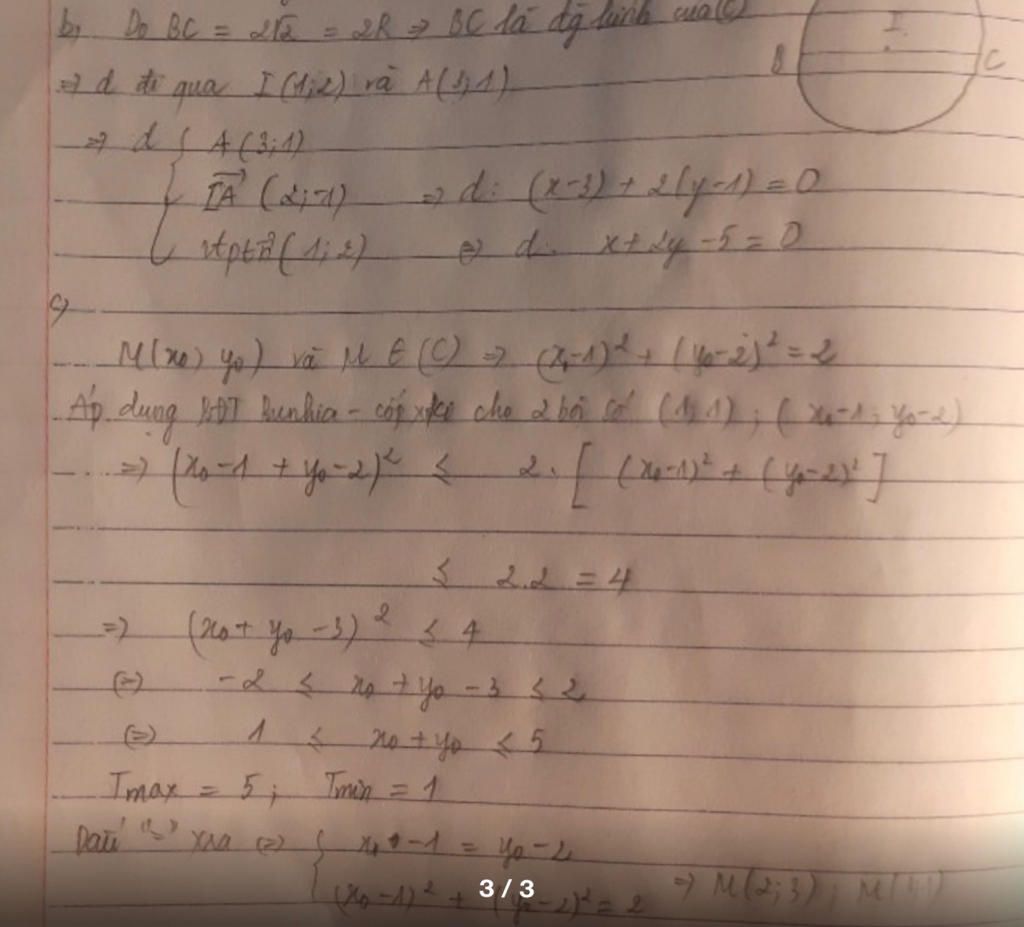 b, Do BC = 2√2 = 2R => BC là đg kính của (C)
I
B C
=> d đi qua I(1;2) và A(3;1)
=> d { A(3;1)
IA→ (2;-1) => d: (x-3) + 2(y-1) = 0
vtpt n→(1;2) <=> d: x+2y-5=0
c,
M(x₀; y₀) và M ∈ (C) => (x₀-1)² + (y₀-2)² = 2
Áp dụng BĐT Bunhia-cópxki cho 2 bộ số (1;1); (x₀-1; y₀-2)
=> (x₀-1 + y₀-2)² ≤ 2. [(x₀-1)² + (y₀-2)²]
≤ 2.2 = 4
=> (x₀+y₀-3)² ≤ 4
(=) -2 ≤ x₀+y₀-3 ≤ 2
(=) 1 ≤ x₀+y₀ ≤ 5
Tmax = 5; Tmin = 1
Dấu "=" xra (=) { x₀-1 = y₀-2
(x₀-1)² + (y₀-2)² = 2 => M(2;3);
3 / 3